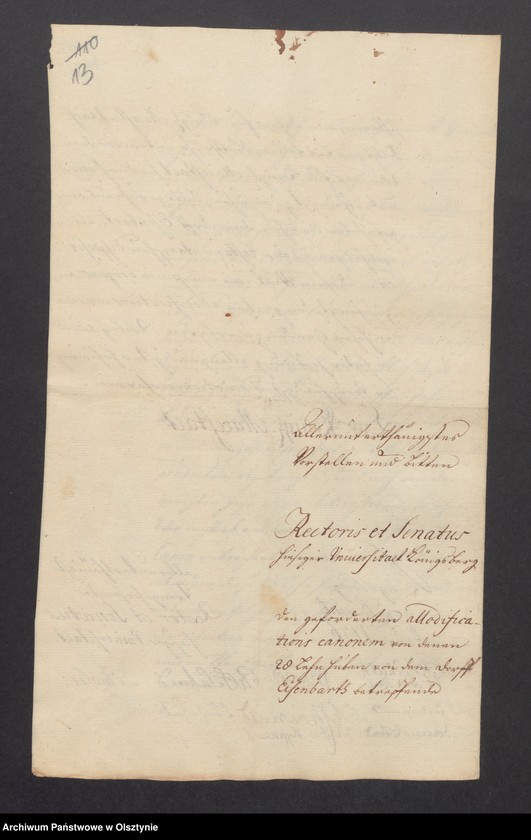 110
13
Allerunterthänigstes
Vorstellen und Bitten
Rectoris et Senatus
hiesiger Universitaet Königsberg
den geforderten Modifica-
tions canonem von denen
28 Lehn Huben von dem Dorff
Eisenbarth betreffende
Archiwum Państwowe w Olsztynie